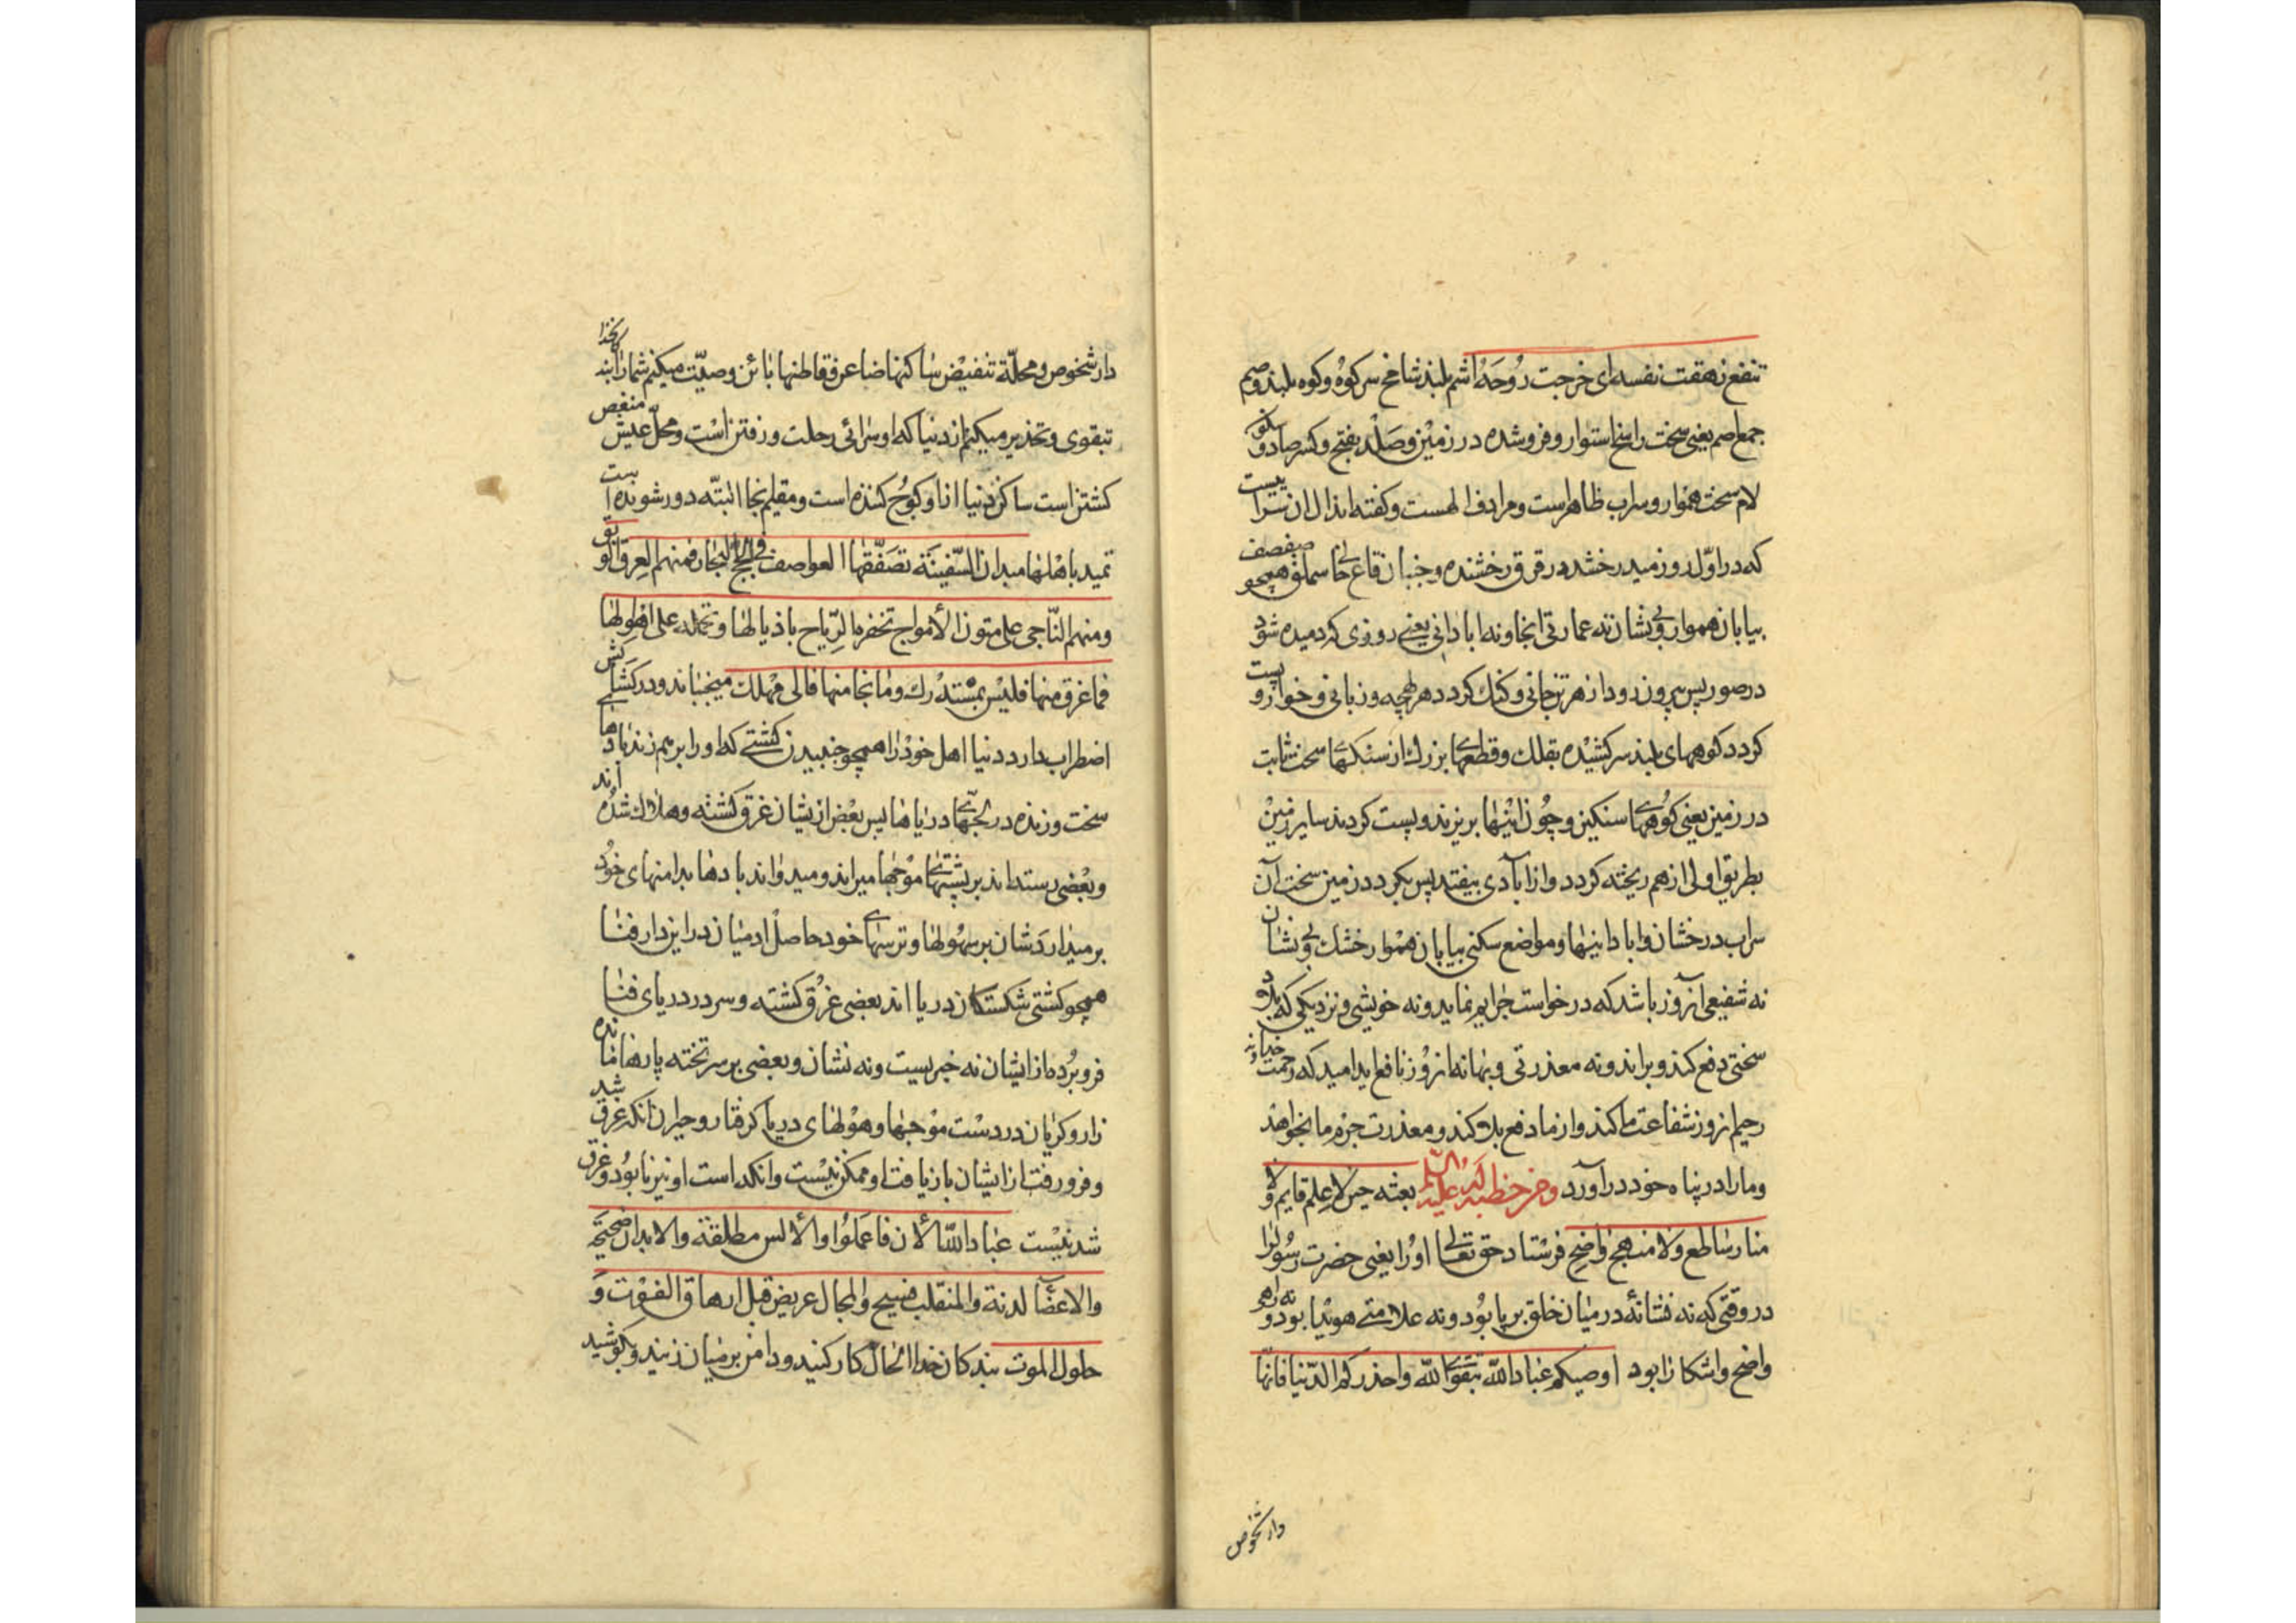 تنفع زهقت نفسه ای خرجت رُوحَهُ اشم بلند شامخ سر کوه و کوه بلند و صم
جمع اصم یعنی سخت راسخ استوار و فرو شده در زمین و صَلْد بفتح و کسر صاد و سکون
لام سخت هموار و سراب ظاهرست و مرادف الهست و کفته اند ال ان سرابیست
که در اوّل روز میدرخشد در قرق رخشنده و جنبان قاع خالی سملق صفصف همچو
بیابان هموار و بی نشان نه عمارتی انجا و نه ابادانی یعنی روزی که دمیده شود
در صور پس بیرون رود از هر تن جانی و کنک کردد هر لهجه و زبانی و خوار و پست
کردد کوههای بلند سر کشیده بفلک و قطعهای بزرک از سنکهای سخت ثابت
در زمین یعنی کوههای سنکین و چُون اینها بریزند و پست کردند سایر زمین
بطریق اولی از هم ریخته کردد و از آبادی بیفتد پس بکردد زمین سخت آن
سراب درخشان و ابادانیها و مواضع سکنی بیابان هموار خشک بی و نشان
نه شفیعی آنروز باشد که درخواست جرایم نماید و نه خویشی و نزدیکی که بلا و
سختی دفع کند و براند و نه معذرتی و بهانه انروز نافع اید امید که رحمت خدای
رحیم انروز شفاعت ما کند و از ما دفع بلا کند و معذرت جرم ما بخواهد
و مارا در پناه خود در آورد ومن خطبة له علیه السلم بعثه حین لا علم قایم ولا
منار ساطع ولا منهج واضح فرستاد حق تعالی او را یعنی حضرت رسول را
در وقتی که نه نشانهٔ در میان خلق بر پا بود و نه علامتی هویدا بود و نه راهی
واضح و اشکارا بود اوصیکم عباد الله بتقوی الله واحذرکم الدّنیا فانّها
دار شخوص
دار شخوص و محلّة تنغیض ساکنها ضاعن و قاطنها بائن وصیّت میکنم شما را ای بندکان خدا
بتقوی و تحذیر میکنم از دنیا که او سرائی رحلت و رفتن است و محلّ عیش منغص
کشتن است ساکن دنیا از او کوچ کننده است و مقیم انجا البتّه دور شونده است
تمید باهلها میدان السّفینَة تصَفّقها العواصف فی لجج البحار فمنهم الغرق الوبق
ومنهم النّاجی علی متون الأمواج تحفزه الرّیاح باذیالها وتحمله علی اهوالها
فما غرق منها فلیس بمستدرك وما نجا منها فالی مهلك میجنباند و در کشاکش
اضطراب دارد دنیا اهل خود را همچو جنبیدن کشتی که او را بر هم زند بادها
سخت وزنده در لجّهای دریاها پس بعض از یشان غرق کشته و هلاک شده اند
و بعضی رسته اند بر پشتهای موجها میراند و میدواند بادها بدامنهای خود
بر میدارَدشان بر سهولها و ترسهای خود حاصل ادمیان در این دار فنا
همچو کشتی شکستکان دریا اند بعضی غرق کشته و سر در دریای فنا
فرو بُرده از ایشان نه خبریست و نه نشان و بعضی بر سر تخته پارها مانده
زار و کریان در دست موجها و هولهای دریا کرفتار و حیران انکه غرق شد
و فرو رفت از ایشان باز یافت او ممکن نیست و انکه است او نیز نابود و غرق
شدنیست عباد الله الأن فاعملوا والألس مطلقة والابدان صحیحَة
والاعضآ لدنة والمنقلب فسیح والمجال عریض قبل ارهاق الفوت و
حلول الموت بندکان خدا الحال کار کنید و دامن بر میان زنید و بکوشید